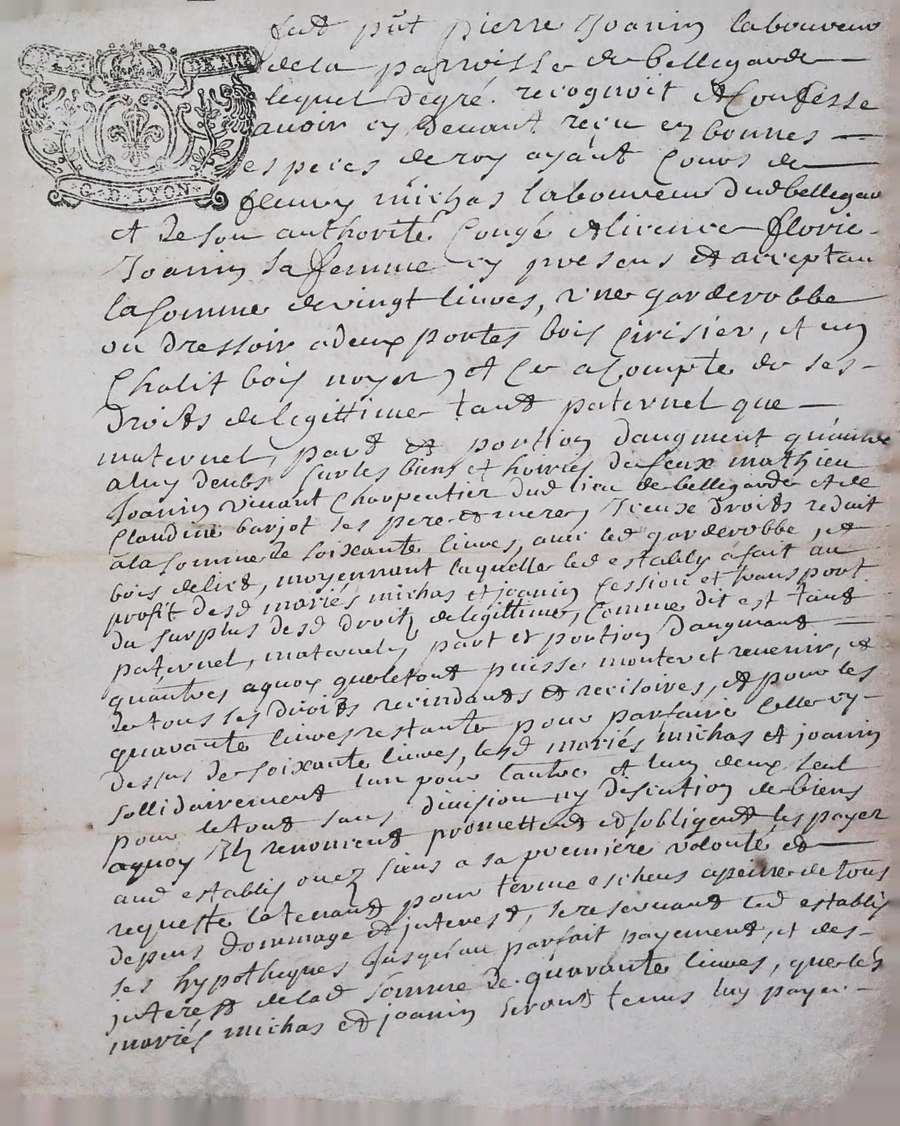 G. D. LYON
fut pñt pierre Joanin laboureur
de la parroisse de bellegarde
lequel degré recognoit et Confesse
auoir cy deuant reçu en bonnes
especes de roy ayant Cours de
fleury michas laboureur dud bellegar
et de son authorité Congé et licence florie
Joanin sa femme cy presens et acceptan
la somme de vingt liures, vne garderobbe
ou dressoir a deux portes bois cirisier, et un
Chalit bois noyer, et Ce a Compte de ses
Droits de legittime tant paternel que
maternel, part et portion daugment
a luy deubs sur les biens et hoiries de feux mathieu
Joanin viuant Charpentier dud lieu de bellegarde et de
Claudine barjot ses pere et mere, Iceux Droits reduit
a la somme de soixante liures, auec led garderobbe, et
bois de lict, moyennant laquelle led estably a fait au
profit desd mariés michas et joanin Cession et transport
du surplus desd droits de legittime, Comme dit est tant
paternel, maternel, part et portion daugmant
qu'autres a quoy que le tout puisse monter et reuenir, et
de tous ses droits recindants et recisoires, et pour les
quarante liures restante pour parfaire Celle cy
dessus de soixante liures, lesd mariés michas et joanin
sollidairement lun pour lautre et lun deux seul
pour le tout sans diuision ny discution de biens
a quoy Ils renoncent promettent et sobligent les payer
aud estably ou es siens a sa premiere volonté et
requeste la tenant pour terme escheus a peine de tous
depens dommage et interest, se reseruant led estably
ses hypotheques Jusqu'au parfait payement, et des
interest de lad somme de quarante liures, que les
mariés michas et joanin seront tenus luy payer